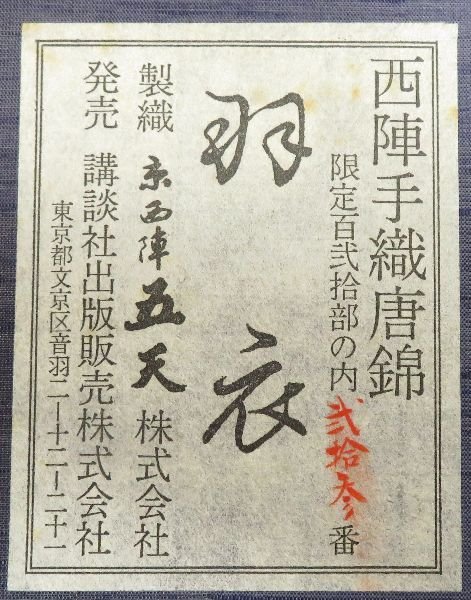 西陣手織唐錦
限定百弐拾部の内弐拾参番
羽衣
製織 京西陣五天株式会社
発売 講談社出版販売株式会社
東京都文京区音羽二ー十二ー二十一